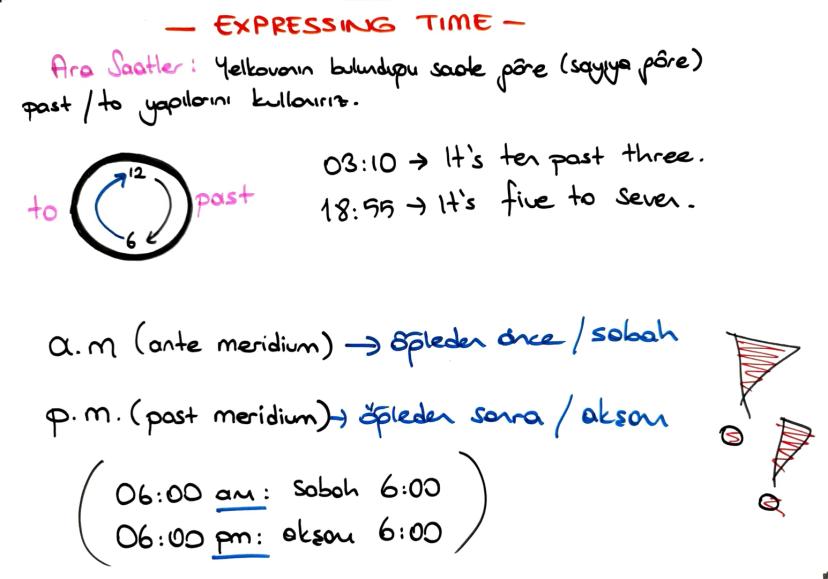 — EXPRESSING TIME —
Ara Saatler: Yelkovanın bulunduğu saate göre (sayıya göre)
past / to yapılarını kullanırız.
12
to past
6
03:10 → It's ten past three.
18:55 → It's five to seven.
a.m (ante meridium) → öğleden önce / sabah
p.m. (post meridium) → öğleden sonra / akşam
06:00 am: sabah 6:00
06:00 pm: akşam 6:00